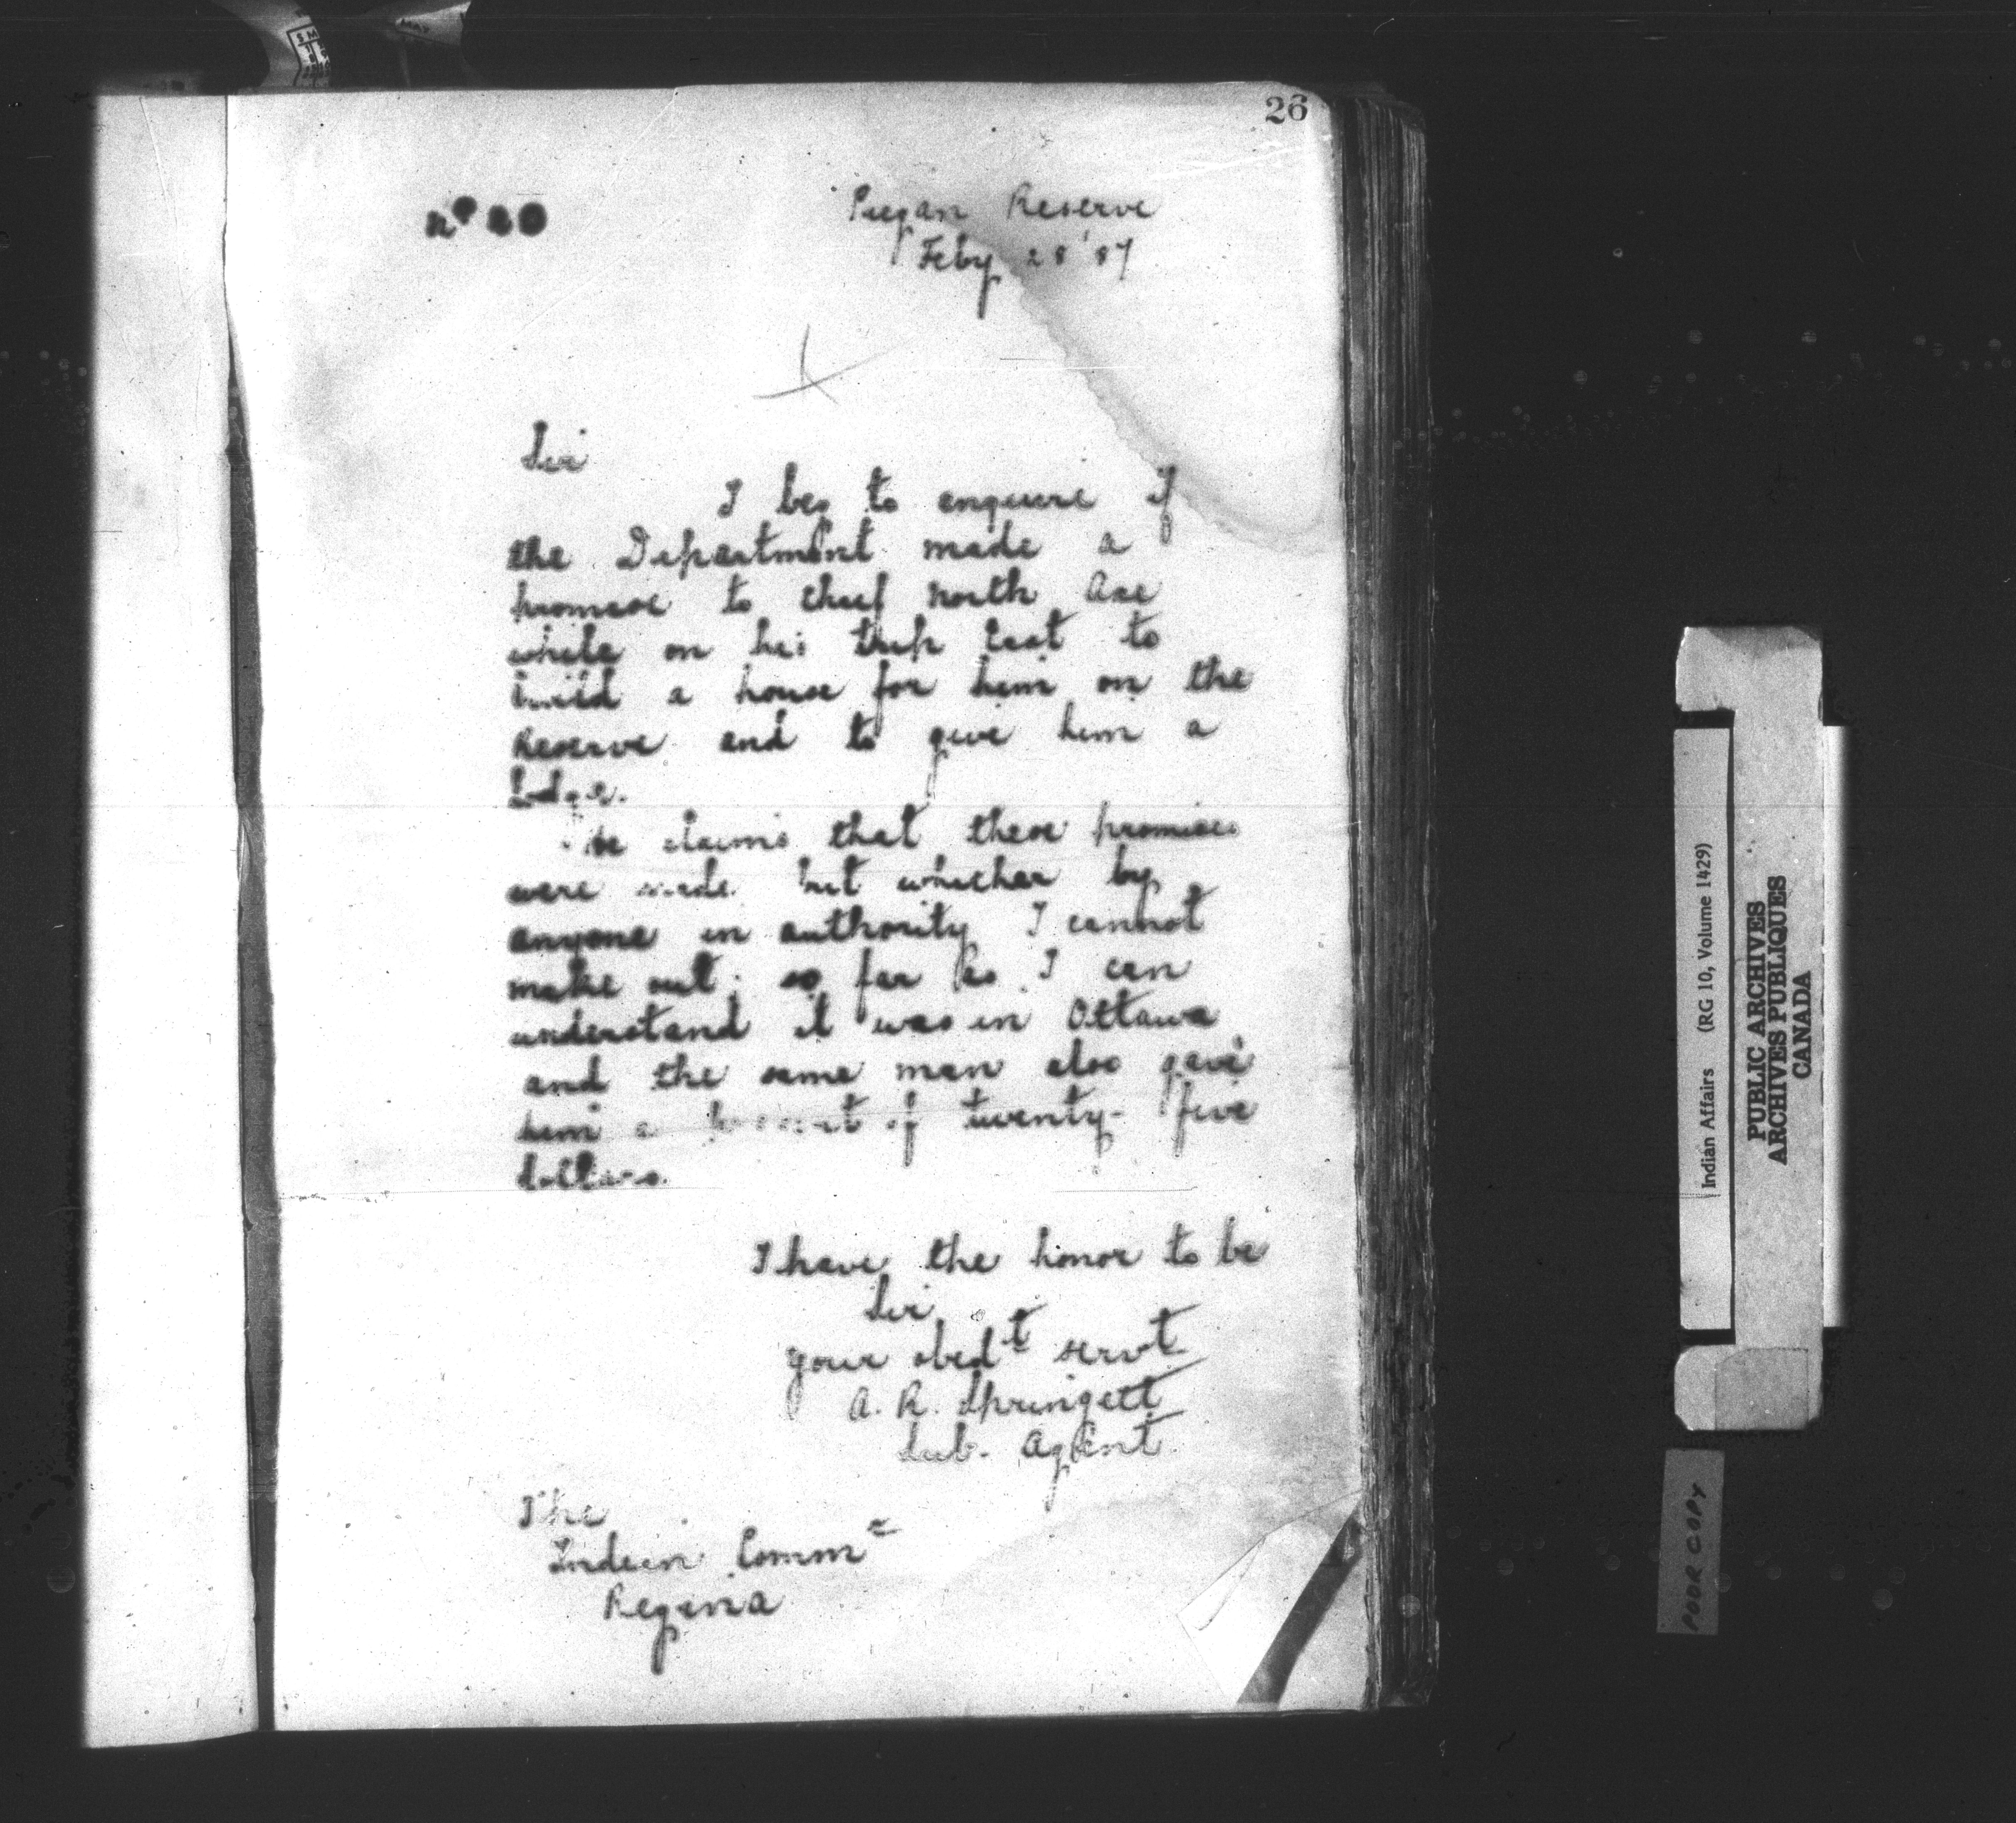 26
Piegan Reserve
Feby 28 '87
Sir
I beg to enquire if
the Department made a
promise to chief North Axe
while on his trip East to
build a house for him on the
Reserve and to give him a
Lodge.
He claims that these promises
were made but whether by
anyone in authority I cannot
make out; so far as I can
understand it was in Ottawa
and the same man also gave
him a present of twenty-five
dollars.
I have the honor to be
Sir
your obedt servt
A. R. Springett
Sub. Agent.
The
Indian Commr
Regina
Indian Affairs (RG 10, Volume 1429)
PUBLIC ARCHIVES
ARCHIVES PUBLIQUES
CANADA
POOR COPY